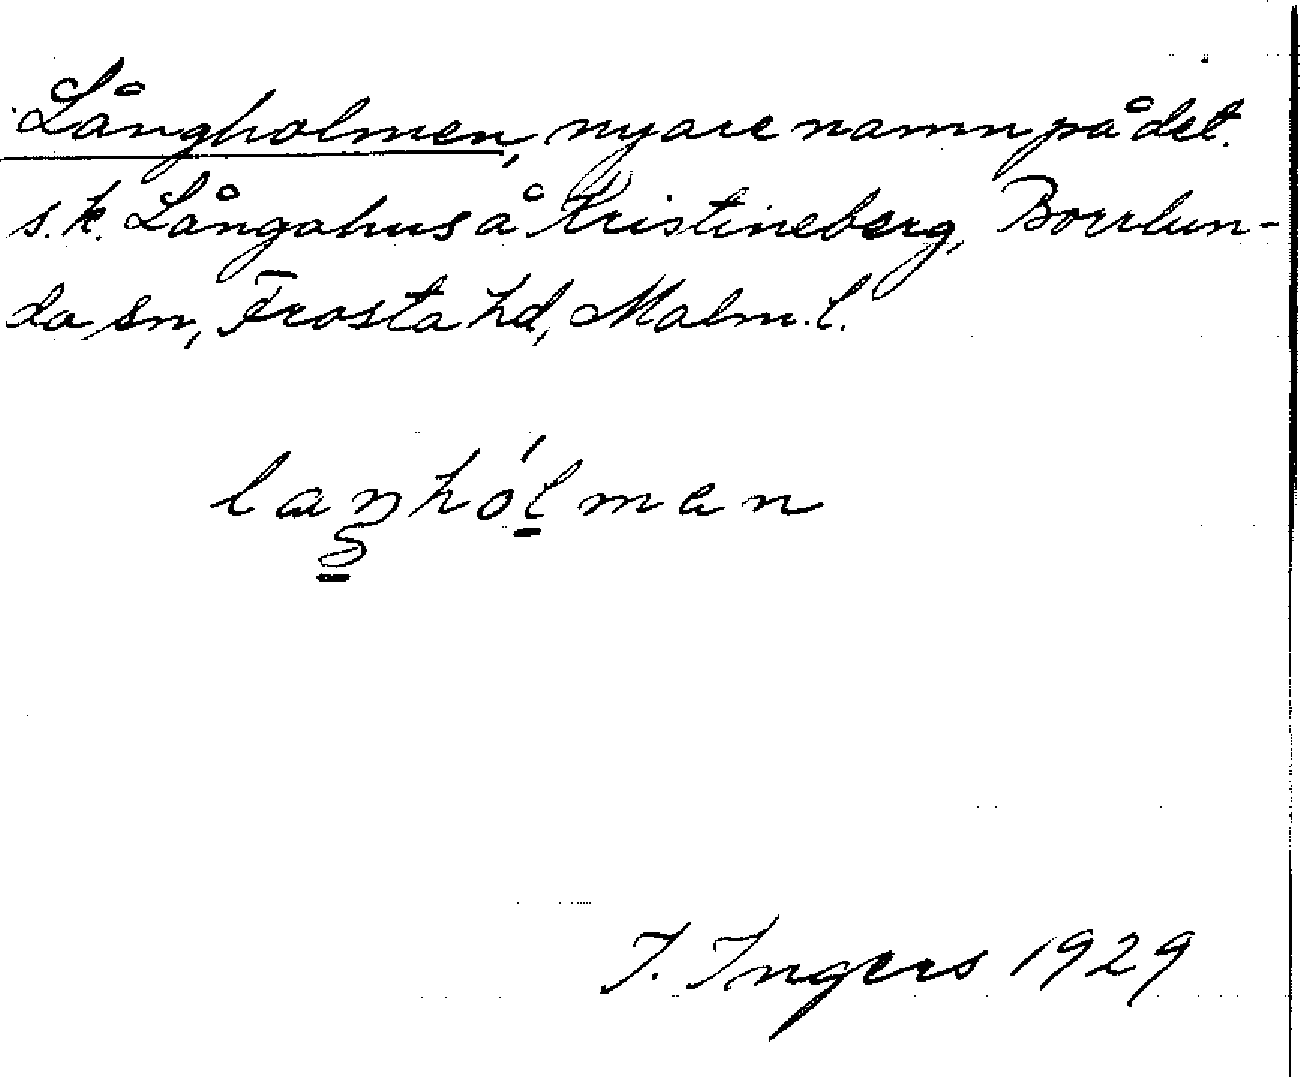 Långholmen, nyare namn på det
s.k. Långahus å Kristineberg, Borrlun-
da sn, Frosta hd, Malm. l.
laŋhólmen
I. Ingers 1929